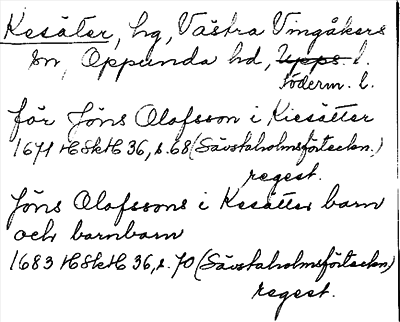 Kesäter, hg, Västra Vingåkers
sn, Oppunda hd, Upps. l.
Söderm. l.
för Jöns Olafsson i Kiesätter
1671 HSkH 36, s. 68 (Sävstaholmsförteckn.)
regest.
Jöns Olafssons i Kesätter barn
och barnbarn
1683 HSkH 36, s. 70 (Sävstaholmsförteckn)
regest.